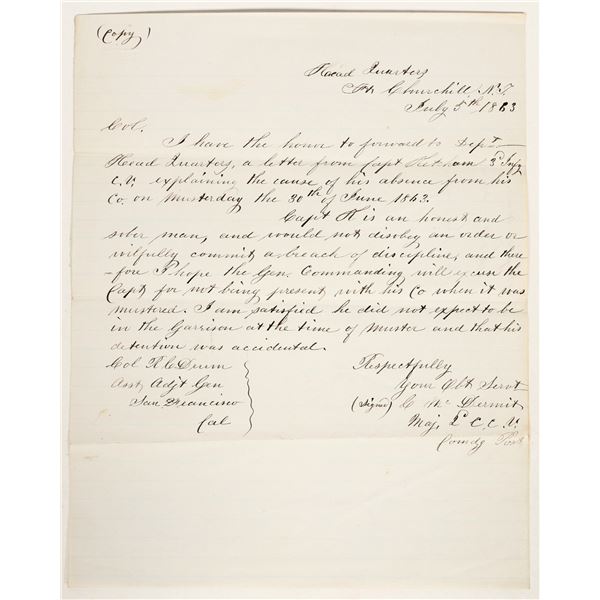 (Copy)
Head Quarters
Ft Churchill N.T.
July 5th 1863
Col.
I have the honor to forward to Dept
Head Quarters, a letter from Capt Ketcham 3d Infy
C.V. explaining the cause of his absence from his
Co. on Musterday the 30th of June 1863.
Capt K is an honest and
sober man, and would not disobey an order or
wilfully commit a breach of discipline, and there
-fore I hope the Gen. Commanding will excuse the
Capt for not being present with his Co when it was
mustered. I am satisfied he did not expect to be
in the Garrison at the time of Muster and that his
detention was accidental.
Col R.C. Drum
Asst Adjt Gen
San Francisco
Cal
Respectfully
Your Obt Servt
(Signed) C McDermit
Maj. 2d C.C.V.
Comdg Post